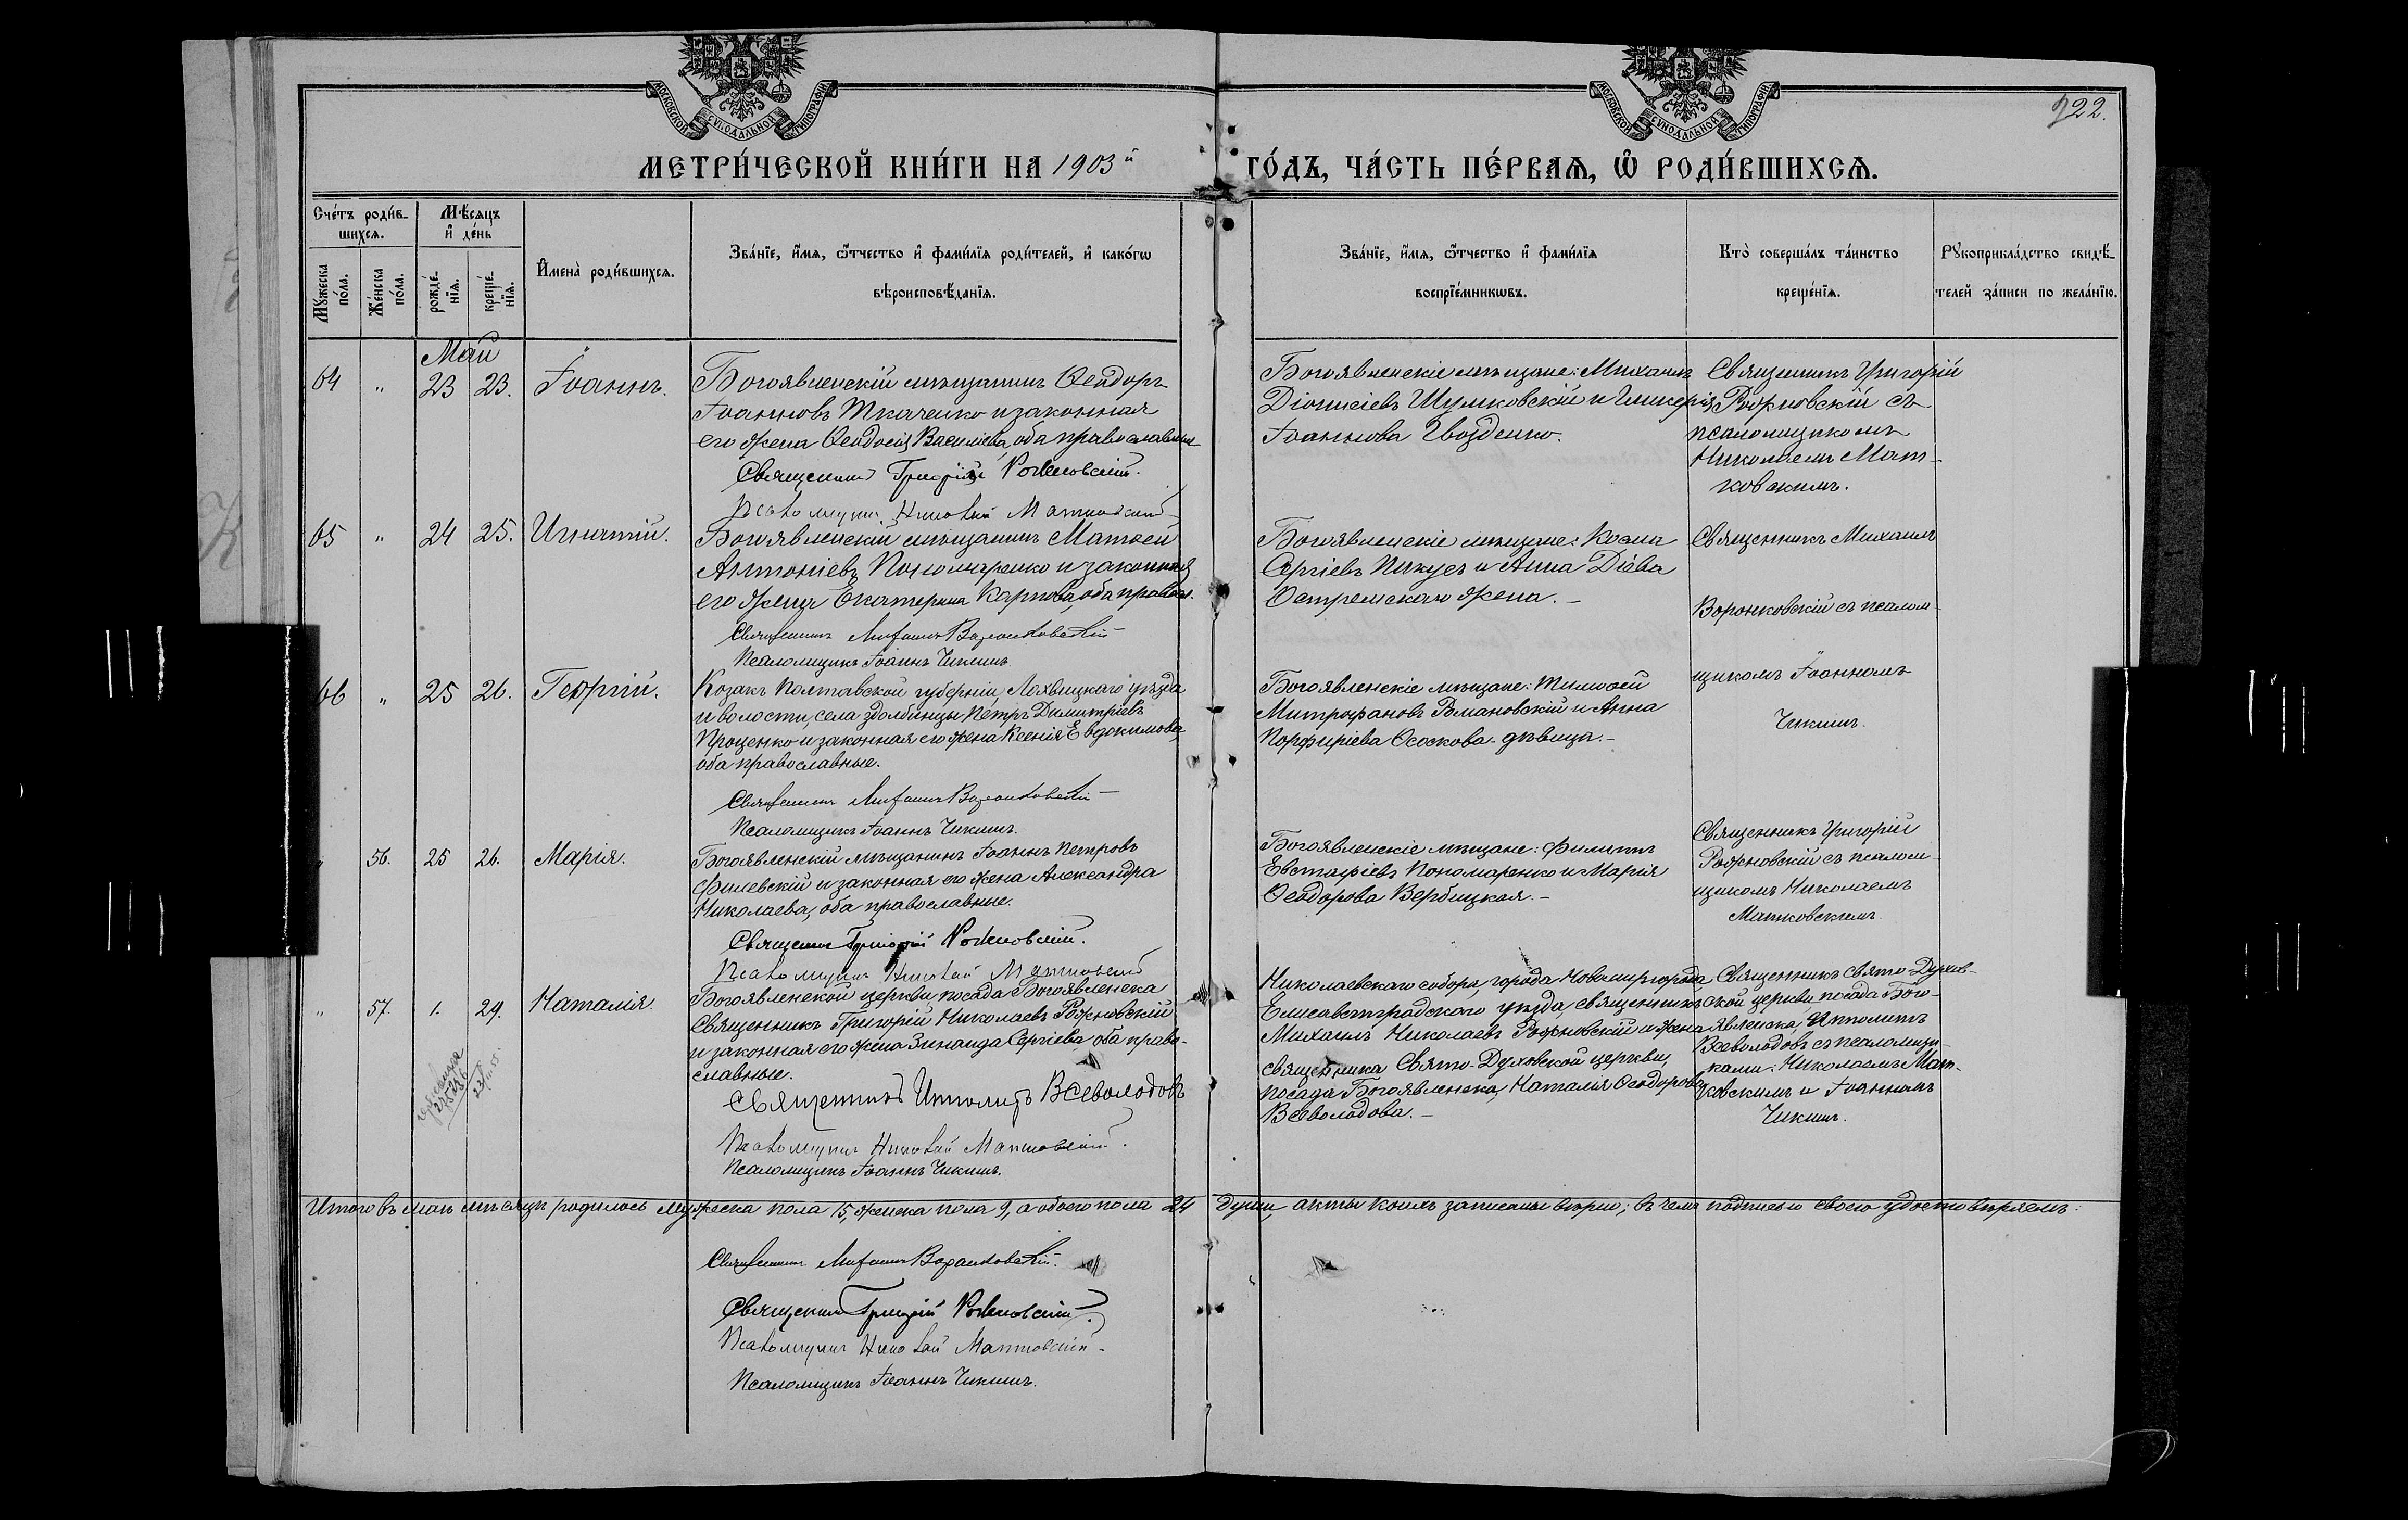 МОСКОВСКОЙ СѴНОДАЛЬНОЙ ТИПОГРАФІИ
МОСКОВСКОЙ СѴНОДАЛЬНОЙ ТИПОГРАФІИ
922.
МЕТРИ́ЧЕСКОЙ КНИ́ГИ НА 1903й ГО́ДЪ, ЧА́СТЬ ПЕ́РВАѦ, Ѡ҆ РОДИ́ВШИХСѦ.
Сче́тъ роди́в-
шихсѧ.
Мꙋ́жеска
по́ла.
Же́нска
по́ла.
Мѣ́сѧцъ
и҆ де́нь
рожде́-
нїѧ.
креще́-
нїѧ.
И҆мена̀ роди́вшихсѧ.
Зва́нїе, и҆́мѧ, ѻ҆́тчество и҆ фами́лїѧ роди́телей, и҆ како́гѡ
вѣроисповѣ́данїѧ.
Зва́нїе, и҆́мѧ, ѻ҆́тчество и҆ фами́лїѧ
воспрїе́мникѡвъ.
Кто̀ соверша́лъ та́инство
креще́нїѧ.
Рꙋкоприкла́дство свидѣ́-
телей за́писи по жела́нїю.
Май
64 " 23 23. Іоаннъ.
Богоявленскій мѣщанинъ Ѳеодоръ
Іоанновъ Ткаченко и законная
его жена Ѳеодосія Василіева, оба православные
Священникъ Григорій Рожновскій.
Псаломщикъ Николай Матковскій
Богоявленскіе мѣщане: Михаилъ
Діонисіевъ Шумковскій и Гликерія
Іоаннова Гвозденко.
Священникъ Григорій
Рожновскій съ
псаломщикомъ
Николаемъ Мат-
ковскимъ.
65 " 24 25. Игнатій.
Богоявленскій мѣщанинъ Матѳей
Антоніевъ Пономаренко и законная
его жена Екатерина Карпова, оба правосл.
Священникъ Михаилъ Воронковскій
Псаломщикъ Іоаннъ Чикишъ.
Богоявленскіе мѣщане: Косма
Сергіевъ и Анна Діева
жена.-
Священникъ Михаилъ
Воронковскій съ псалом-
щикомъ Іоанномъ
Чикишъ.
66 " 25 26. Георгій.
Козакъ Полтавской губерніи, Лохвицкаго уѣзда
и волости, села Петръ Димитріевъ
Проценко и законная его жена Ксенія Евдокимова,
оба православные.
Священникъ Михаилъ Воронковскій
Псаломщикъ Іоаннъ Чикишъ.
Богоявленскіе мѣщане: Тимоѳей
Митрофановъ Романовскій и Анна
Порфиріева Ососкова-дѣвица.-
" 56. 25 26. Марія.
Богоявленскій мѣщанинъ Іоаннъ Петровъ
Филевскій и законная его жена Александра
Николаева, оба православные.
Священникъ Григорій Рожновскій.
Псаломщикъ Николай Матковскій
Богоявленскіе мѣщане: Филиппъ
Евстафіевъ Пономаренко и Марія
Ѳеодорова Вербицкая.-
Священникъ Григорій
Рожновскій съ псалом-
щикомъ Николаемъ
Матковскимъ.
" 57. 1. 29. Наталія.
Богоявленской церкви посада Богоявленска
Священникъ Григорій Николаевъ Рожновскій
и законная его жена Зинаида Сергіева, оба право-
славные.
Священникъ Ипполитъ Всеволодовъ
Псаломщикъ Николай Матковскій.
Псаломщикъ Іоаннъ Чикишъ.
Николаевскаго собора, города Новомиргорода,
Елисаветградскаго уѣзда, священникъ
Михаилъ Николаевъ Рожновскій и жена
священника Свято-Духовской церкви,
посада Богоявленска, Наталія Ѳеодорова
Всеволодова.-
Священникъ Свято-Духов-
ской церкви посада Бого-
явленска, Ипполитъ
Всеволодовъ съ псаломщи-
ками: Николаемъ Мат-
ковскимъ и Іоанномъ
Чикишъ.
Итого въ маѣ мѣсяцѣ родилось мужеска пола 15, женска пола 9, а обоего пола 24 души, акты коихъ записаны вѣрно; въ чемъ подписью своею удостовѣряемъ:
Священникъ Михаилъ Воронковскій.
Священникъ Григорій Рожновскій.
Псаломщикъ Николай Матковскій.
Псаломщикъ Іоаннъ Чикишъ.